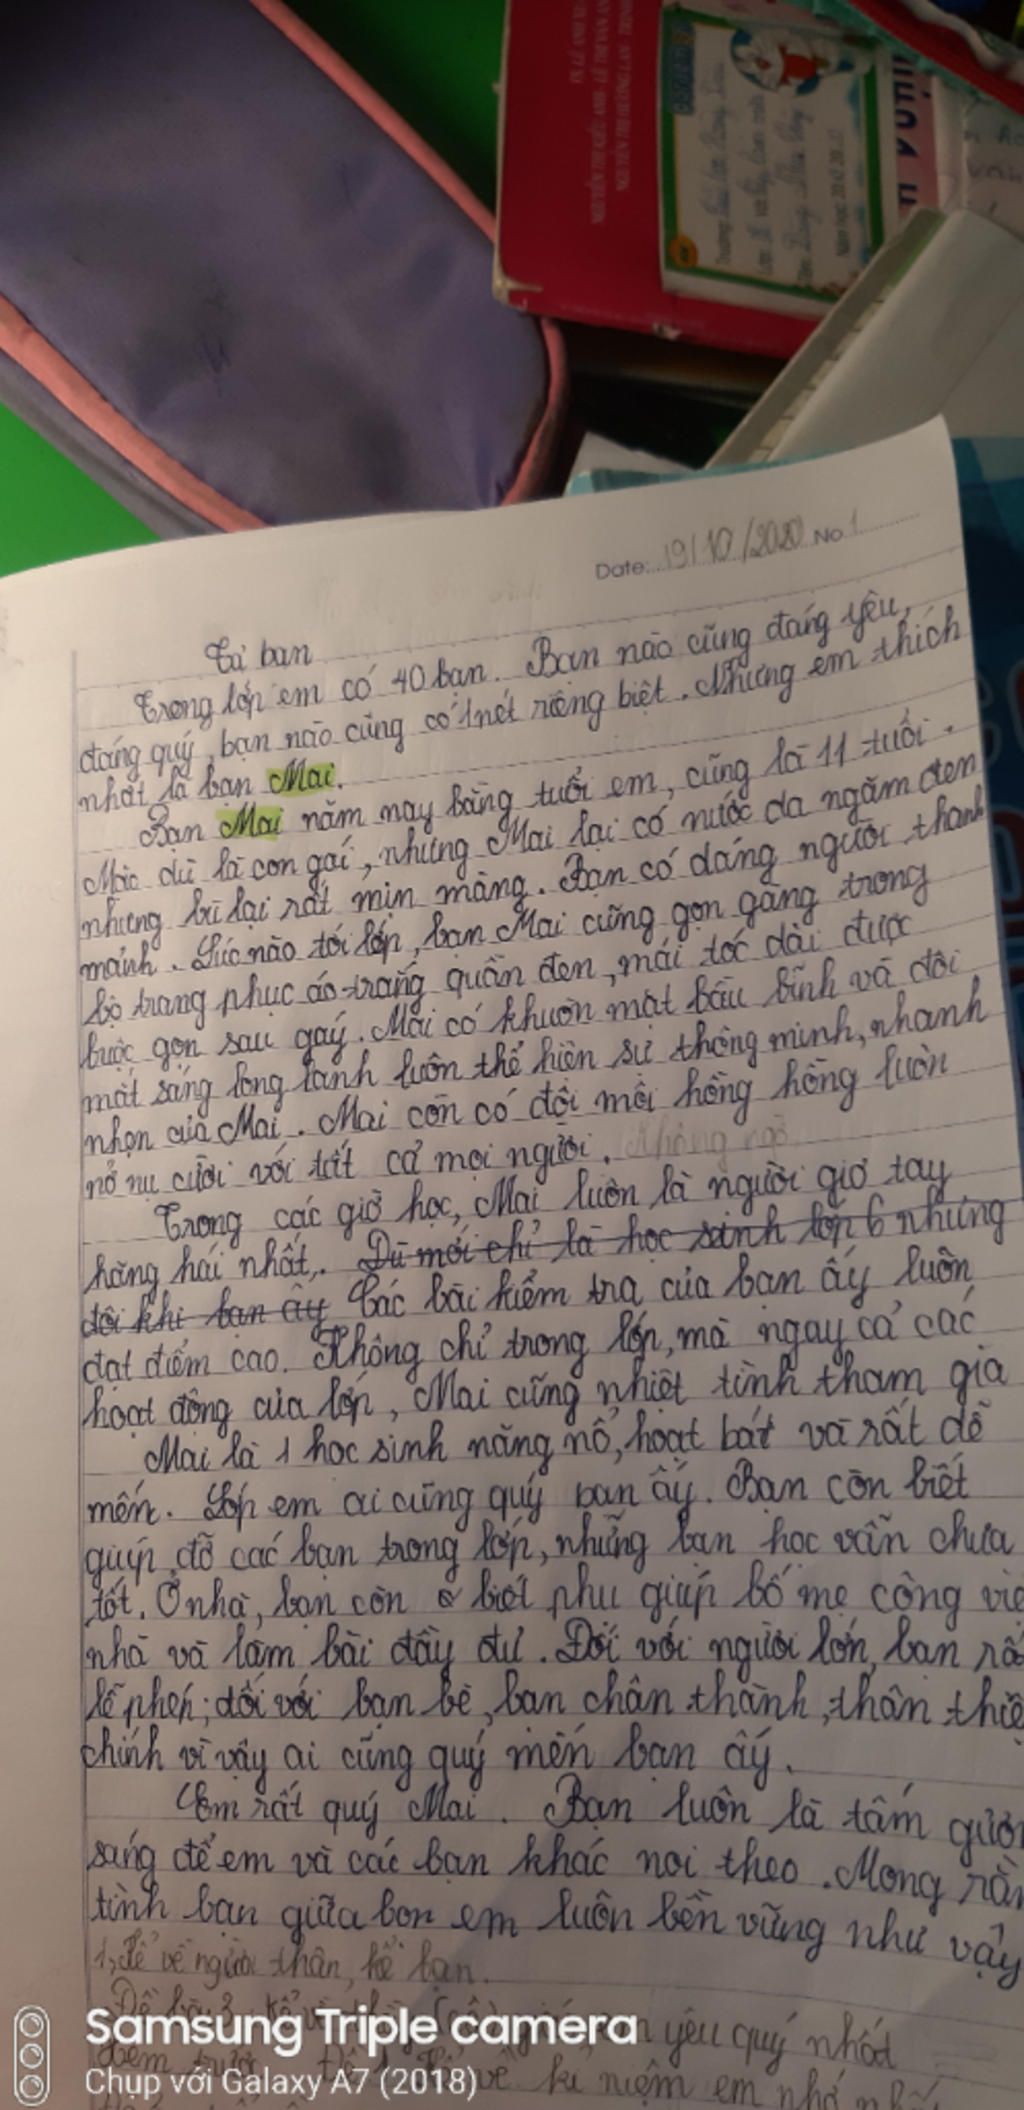 TS LÊ ANH X
NGUYỄN THỊ KIỀU ANH - LÊ THỊ VÂN AN
NGUYỄN THỊ HƯƠNG LAN - TRỊNH
Trường
Lớp
Năm học 20.20.20.21
Date: 19/10/2020 No 1
Tả bạn
Trong lớp em có 40 bạn. Bạn nào cũng đáng yêu,
đáng quý, bạn nào cũng có 1 nét riêng biệt. Nhưng em thích
nhất là bạn Mai.
Bạn Mai năm nay bằng tuổi em, cũng là 11 tuổi.
Mặc dù là con gái, nhưng Mai lại có nước da ngăm đen
nhưng bù lại rất mịn màng. Bạn có dáng người thanh
mảnh. Lúc nào tới lớp, bạn Mai cũng gọn gàng trong
bộ trang phục áo trắng quần đen, mái tóc dài được
buộc gọn sau gáy. Mai có khuôn mặt bầu bĩnh và đôi
mắt sáng long lanh luôn thể hiện sự thông minh, nhanh
nhẹn của Mai. Mai còn có đôi môi hồng hồng luôn
nở nụ cười với tất cả mọi người. Không ngờ
Trong các giờ học, Mai luôn là người giơ tay
hăng hái nhất. Dù mới chỉ là học sinh lớp 6 nhưng
đôi khi bạn ấy Các bài kiểm tra của bạn ấy luôn
đạt điểm cao. Không chỉ trong lớp, mà ngay cả các
hoạt động của lớp, Mai cũng nhiệt tình tham gia
Mai là 1 học sinh năng nổ, hoạt bát và rất dễ
mến. Lớp em ai cũng quý bạn ấy. Bạn còn biết
giúp đỡ các bạn trong lớp, những bạn học vẫn chưa
tốt. Ở nhà, bạn còn biết phụ giúp bố mẹ công việ
nhà và làm bài đầy đủ. Đối với người lớn, bạn rấ
lễ phép; đối với bạn bè, bạn chân thành, thân thiệ
chính vì vậy ai cũng quý mến bạn ấy.
Em rất quý Mai. Bạn luôn là tấm gươn
sáng để em và các bạn khác noi theo. Mong rằn
tình bạn giữa bọn em luôn bền vững như vậy
1, đề về người thân, kể bạn.
Đề bài 3 Kể về yêu quý nhất
Đề kỉ niệm em nhớ
Samsung Triple camera
Chụp với Galaxy A7 (2018)